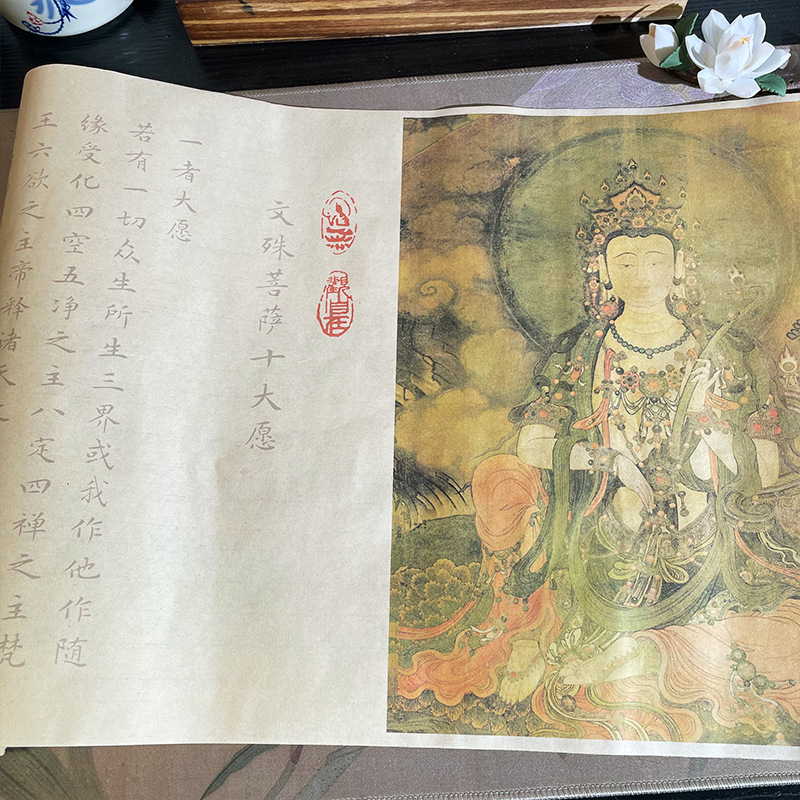 文殊菩萨十大愿
一者大愿
若有一切众生所生三界或我作他作随
缘受化四空五净之主八定四禅之主梵
王六欲之主帝释诸天